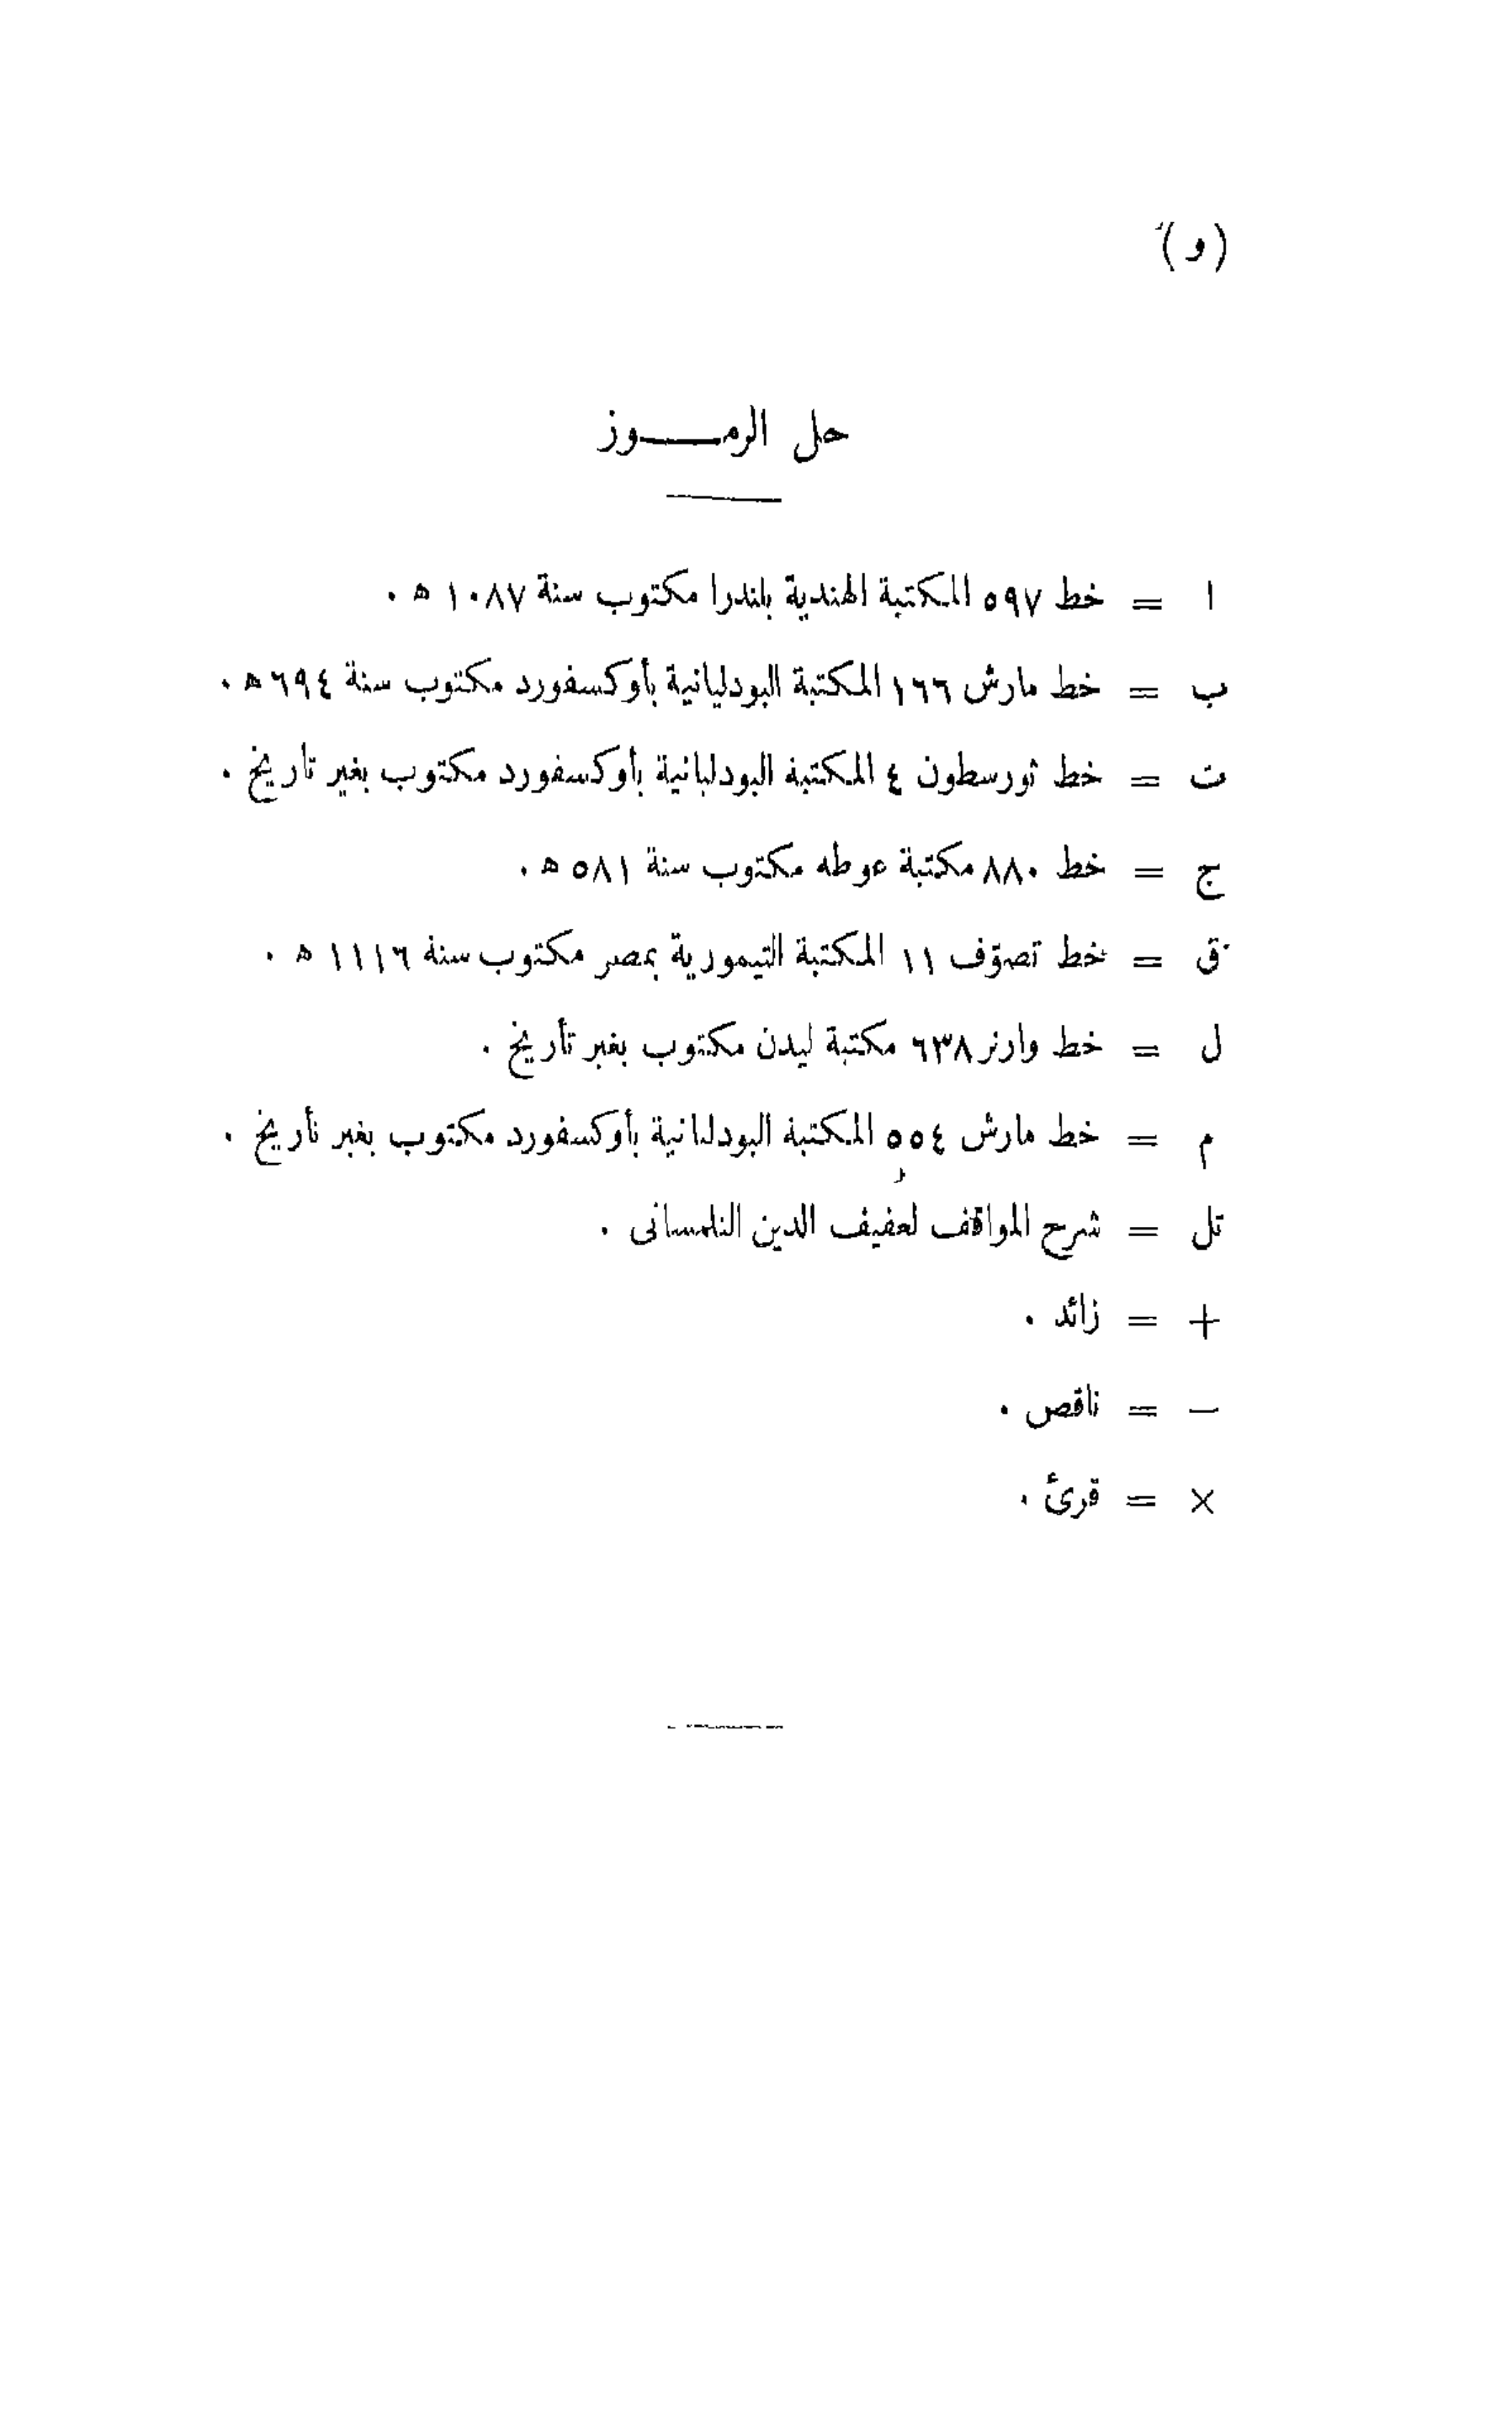 (و)
حل الرمــــوز
ا = خط ٥٩٧ المكتبة الهندية بلندرا مكتوب سنة ١٠٨٧ ه .
ب = خط مارش ١٦٦ المكتبة البودليانية بأوكسفورد مكتوب سنة ٦٩٤ ه .
ت = خط ثورسطون ٤ المكتبة البودليانية بأوكسفورد مكتوب بغير تأريخ .
ج = خط ٨٨٠ مكتبة غوطه مكتوب سنة ٥٨١ ه .
ق = خط تصوّف ١١ المكتبة التيمورية بمصر مكتوب سنة ١١١٦ ه .
ل = خط وارنر ٦٣٨ مكتبة ليدن مكتوب بغير تأريخ .
م = خط مارش ٥٥٤ المكتبة البودليانية بأوكسفورد مكتوب بغير تأريخ .
تل = شرح المواقف لعفيف الدين التلمسانى .
+ = زائد .
— = ناقص .
× = قرئ .